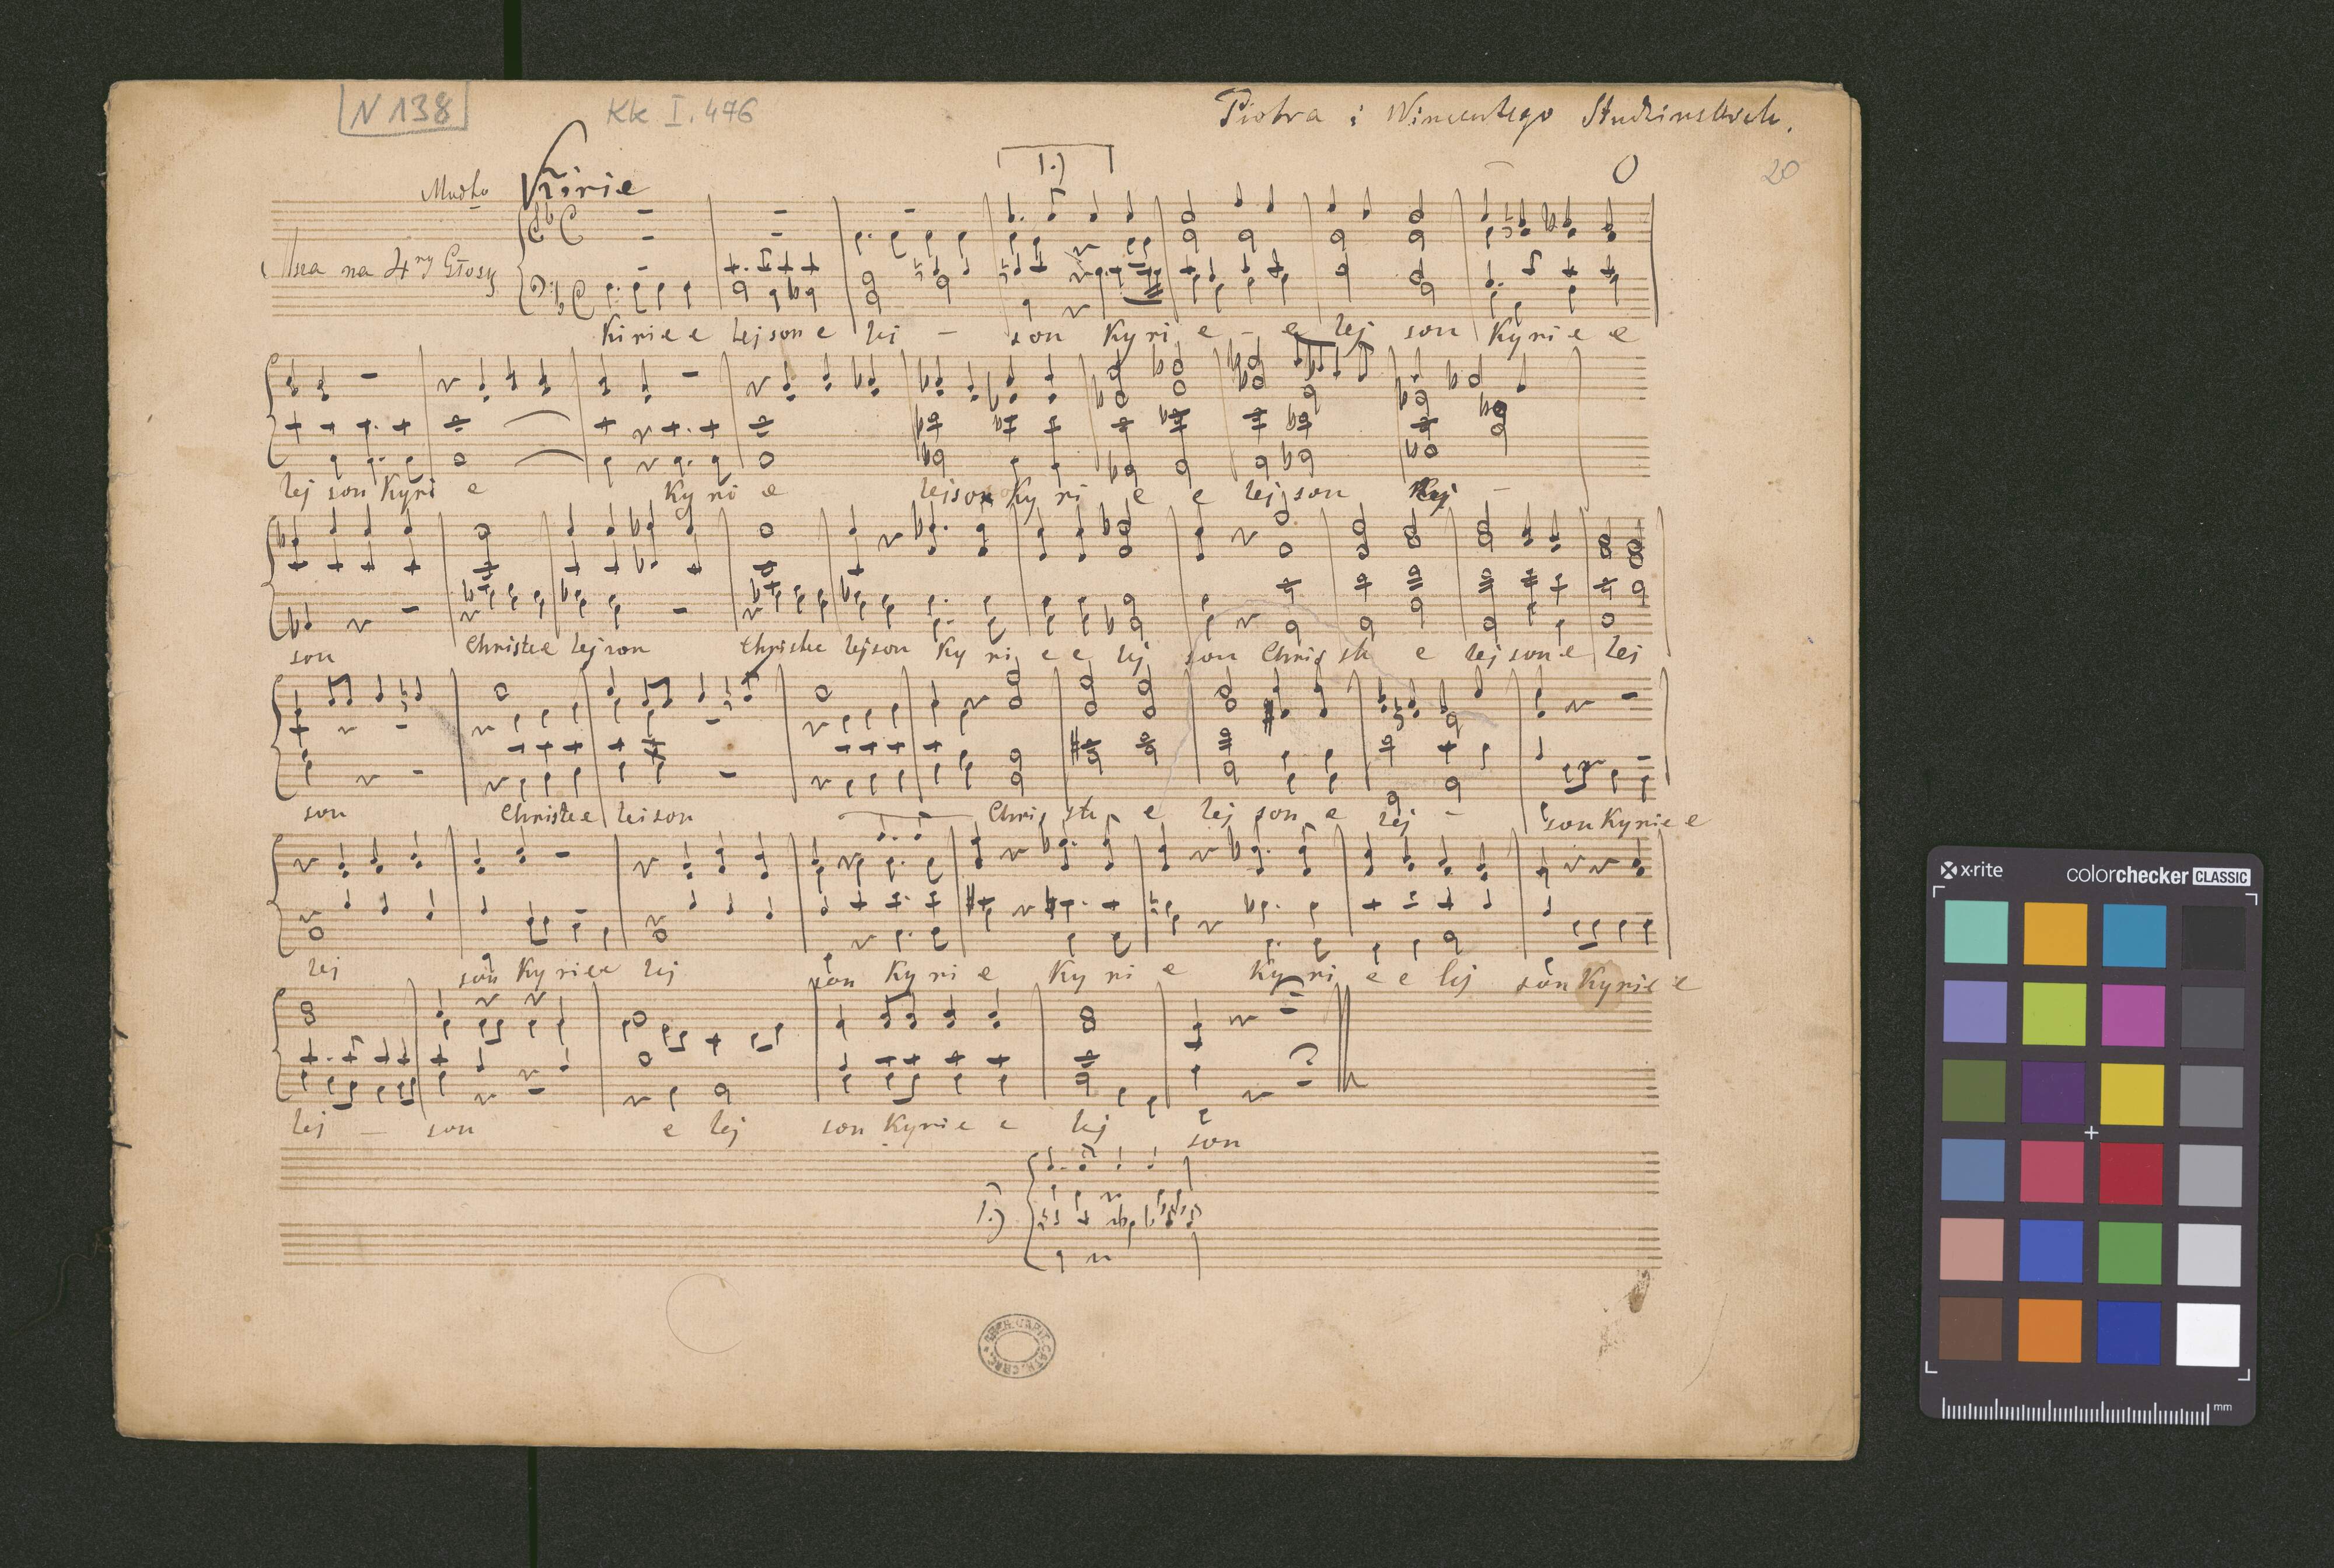 N 138 Kk I. 476 Piotra i Wincentego Studzinskich.
20
Modto Kirie
1.)
Msza na 4ry Głosy
Kirie e lejson e lej - son Kyri e - e lej son Kyri e e
lej son Kyri e Ky ri e lejson Ky ri e e lej son lej -
son Christe e lejson Christe e lejson Ky ri e e lej son Chris te e lej son e lej
son Christe e lei son Chris te e lej son e lej - son Kyrie e
lej son Kyrie e lej son Kyri e Ky ri e Ky ri e e lej son Kyrie e
lej - son e lej son Kyrie e lej son
1.)
x·rite colorchecker CLASSIC
mm